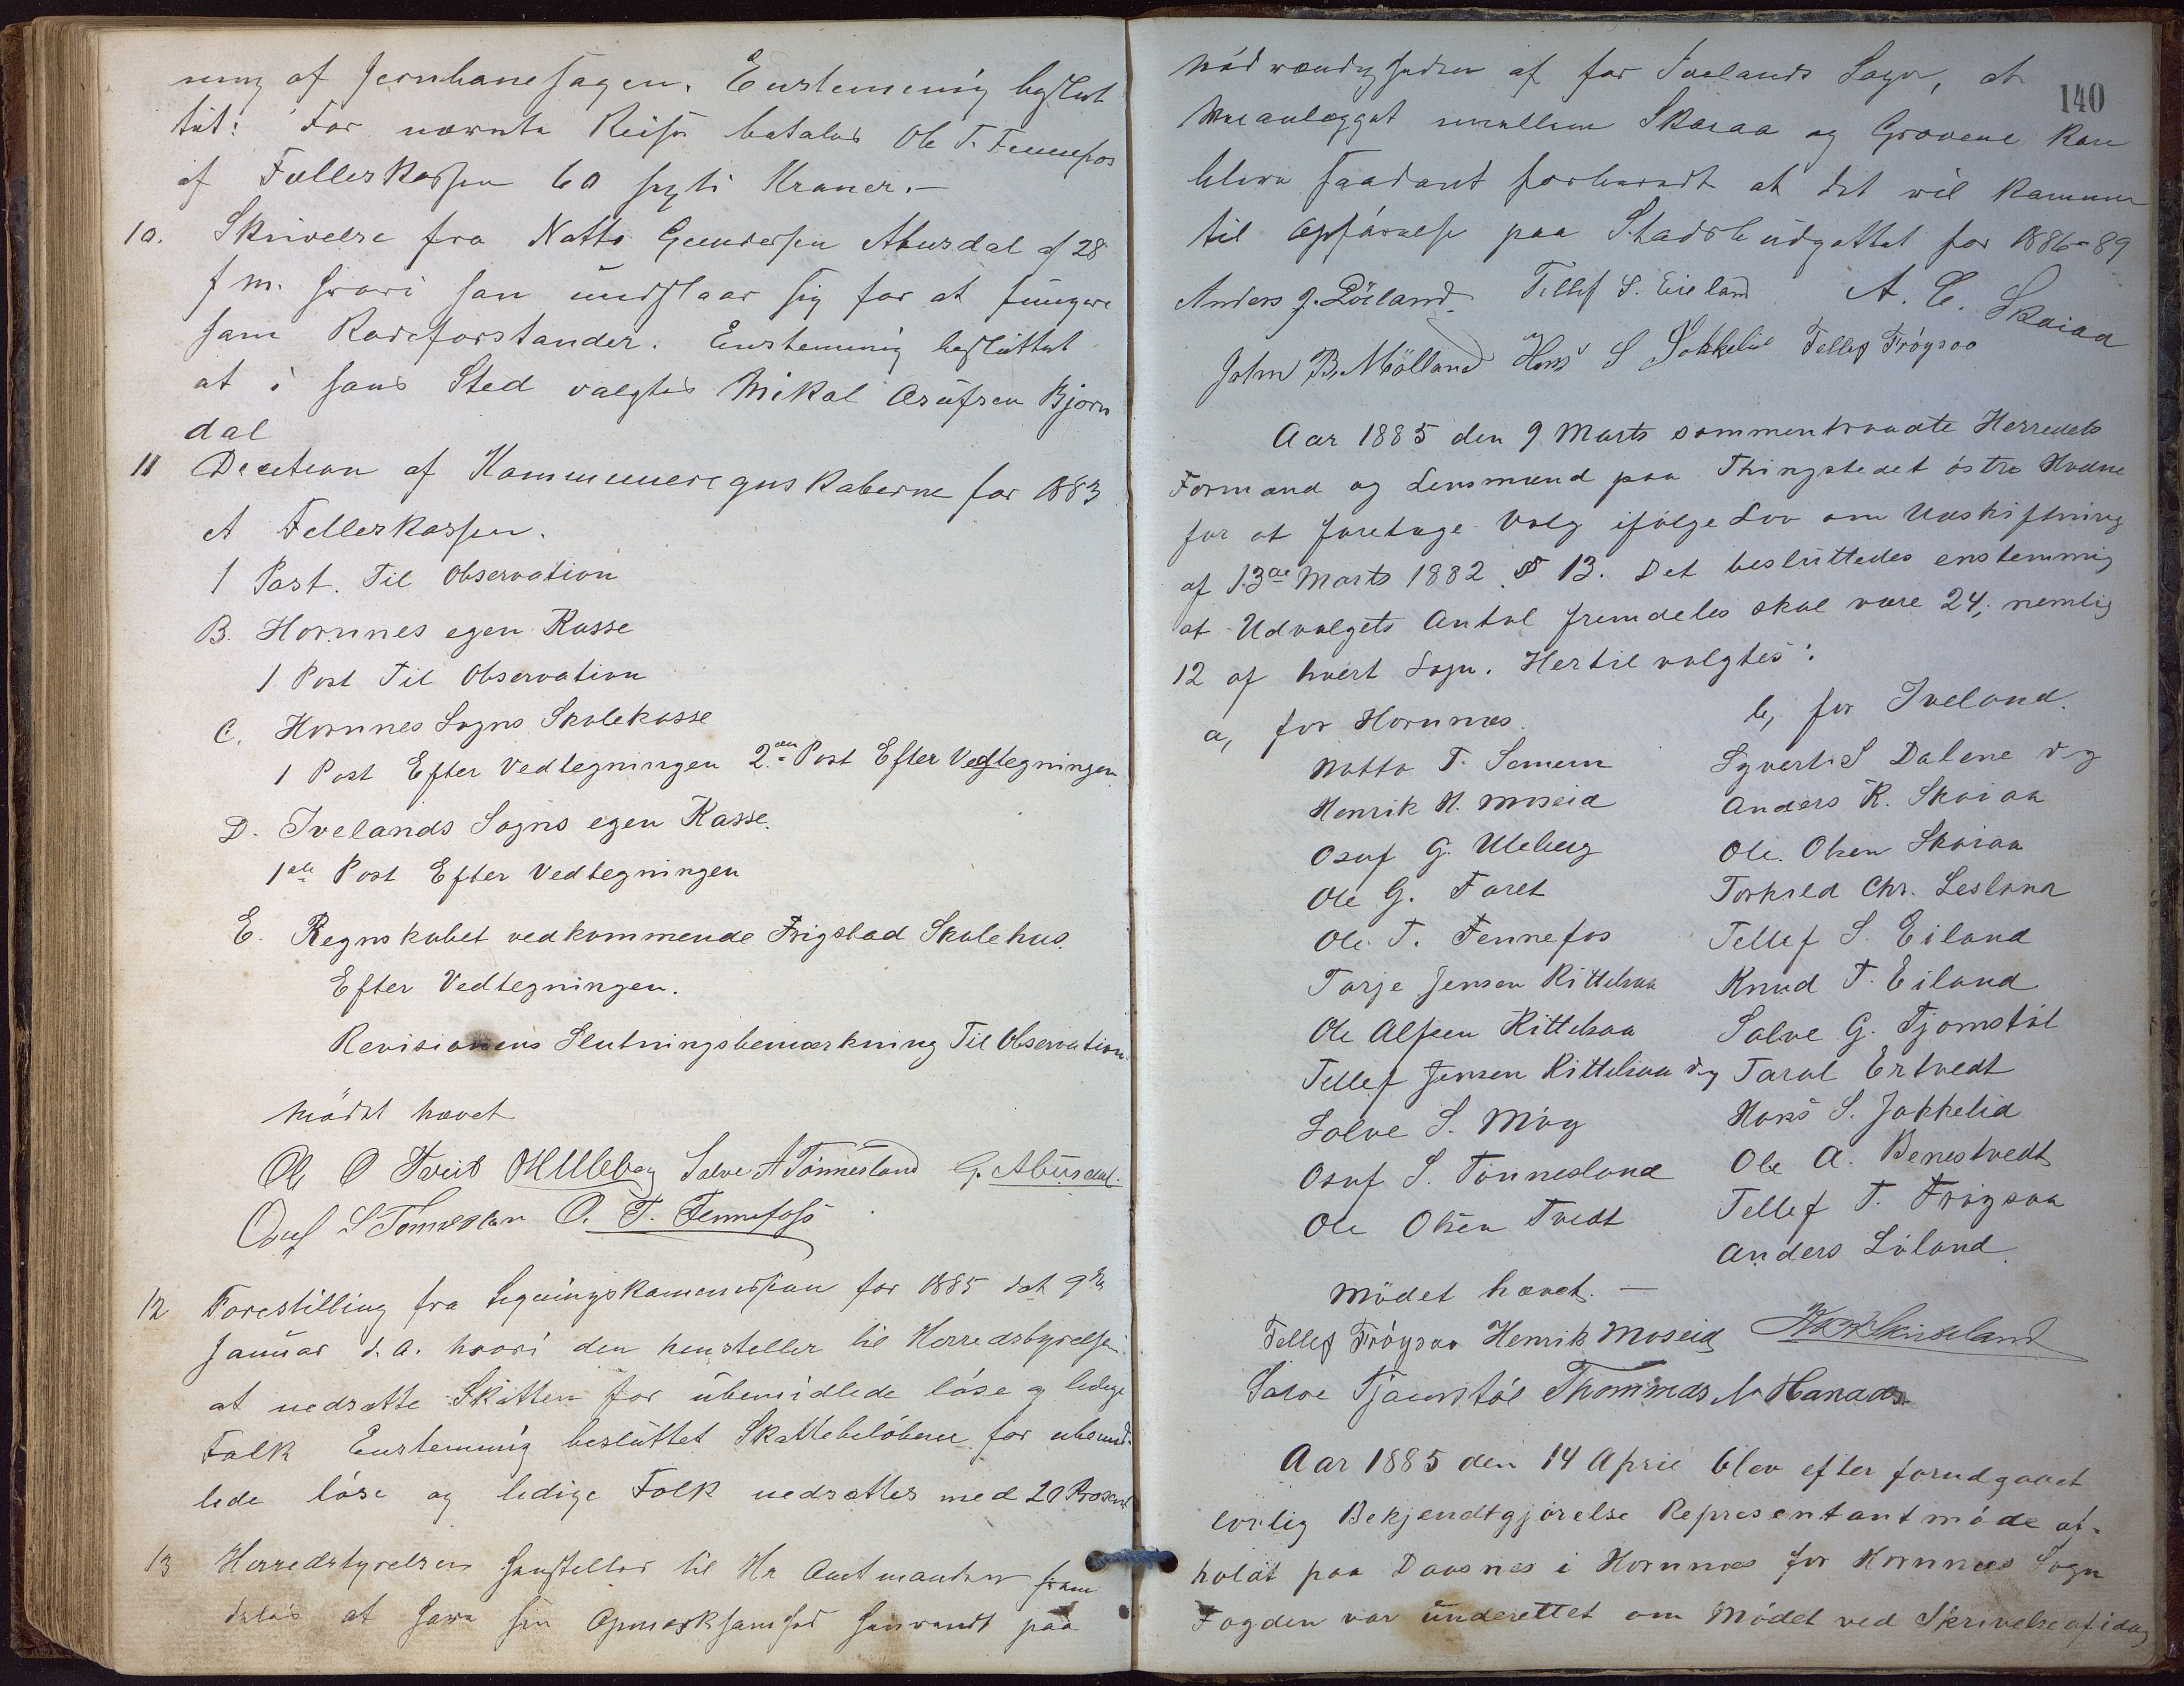 ning af Jernbanesagen. Enstemmig beslut
tet: For nævnte Reise betales Ole T. Fennefos
af Fælleskassen 60 sexti Kroner.–
10. Skrivelse fra Notto Gundersen Abusdal af 28
f m. hvori han undslaar sig for at fungere
som Rodeforstander. Enstemmig besluttet
at i hans Sted valgtes Mikal Osufsen Bjørn
dal
11 Decition af Kommuneregnskaberne for 1883
A Felleskassen.
1 Post. Til Observation
B. Hornnes egen Kasse
1 Post Til Observation
C. Hornnes Sogns Skolekasse
1 Post Efter Vedtegningen 2den Post Efter Vedtegningen
D. Ivelands Sogns egen Kasse.
1ste Post Efter Vedtegningen
E. Regnskabet vedkommende Frigstad Skolehus.
Efter Vedtegningen.
Revisionens Slutningsbemærkning Til Observation.
Mödet hævet
Ole O Tveit OH Uleberg Salve A Tönnesland G. Abusdal.
Osuf S Tönneslan O. T. Fennefoss
12 Forestilling fra Ligningskommissionen for 1885 dat 9de
Januar d. A. hvori den henstiller til Herredsbyrelsen
at nedsætte Skatten for ubemidlede löse og ledige
Folk Enstemmig besluttet Skattebelöbene for ubemid-
lede löse og ledige Folk nedsættes med 20 Prosent
13 Herredstyrelsen henstiller til Hr Amtmanden frem
deles at have sin Opmerksomhed henvendt paa
140
Nödvændigheden af for Ivelands Sogn, at
Veianlægget imellem Skaiaa og Grovene kan
blive saadant forberedt at det vil komme
til Opförelse paa Stadsbudgettet for 1886–89
Anders J. Löiland. Tellef S. Eieland A. C. Skaiaa
John B. Mölland Hans S Jokkelid Tellef Fröysaa
Aar 1885 den 9 Marts sammentraadte Herredets
Formænd og Lensmænd paa Thingstedet östre Hodne
for at foretage Valg ifölge Lov om Udskiftning
af 13de Marts 1882 § 13. Det besluttedes enstemmig
at Udvalgets Antal fremdeles skal være 24, nemlig
12 af hvert Sogn. Hertil valgtes:
a, for Hornnes.
Notto T. Senum
Henrik H. Moseid
Osuf G. Uleberg
Ole G. Faret
Ole T. Fennefos
Tarje Jensen Kittelsaa
Ole Alfsen Kittelsaa
Tellef Jensen Kittelsaa dy
Salve S. Möy
Osuf S. Tönnesland
Ole Olsen Tvedt
b, for Iveland.
Syvert S Dalene dy
Anders K. Skaiaa
Ole Olsen Skaiaa
Torkild Chr. Lesland
Tellef S. Eiland
Knud T. Eiland
Salve G. Tjomstöl
Taral Ertvedt
Hans S. Jokkelid
Ole A. Benestvedt
Tellef T. Fröysaa
Anders Löland.
Mödet hævet. –
Tellef Fröysaa Henrik Moseid
Salve Tjamstöl Thommas
Aar 1885 den 14 April blev efter forudgaaet
lovlig Bekjendtgjörelse Representantmöde af-
holdt paa Daasnes i Hornnes for Hornnes Sogn
Fogden var underettet om Mödet ved Skrivelse af idag